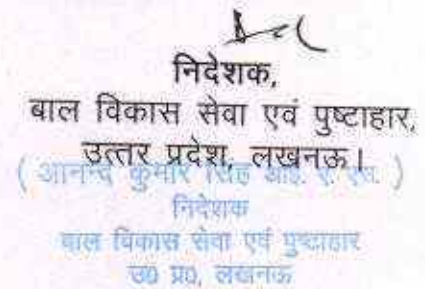 निदेशक,
बाल विकास सेवा एवं पुष्टाहार,
उत्तर प्रदेश, लखनऊ।
( आनन्द कुमार सिंह आई. ए. एस. )
निदेशक
बाल विकास सेवा एवं पुष्टाहार
उ0 प्र0, लखनऊ